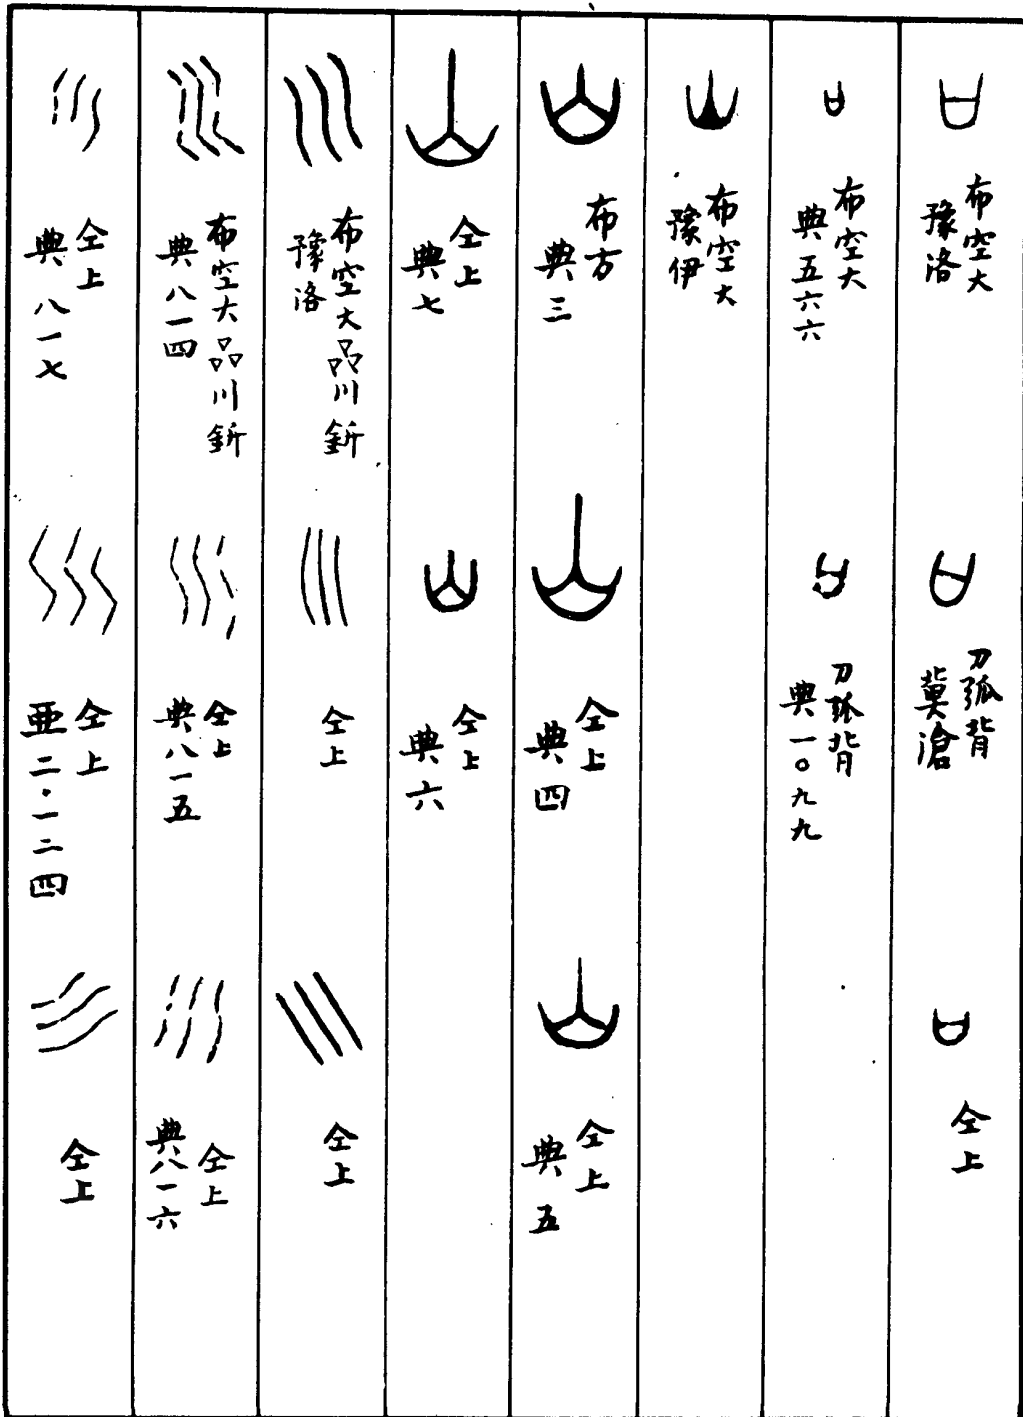 布空大
豫洛
刀弧背
冀滄
仝上
布空大
典五六六
刀弧背
典一〇九九
布空大
豫伊
布方
典三
仝上
典四
仝上
典五
仝上
典七
仝上
典六
布空大品川釿
豫洛
仝上
仝上
布空大品川釿
典八一四
仝上
典八一五
仝上
典八一六
仝上
典八一七
仝上
亜二·一二四
仝上